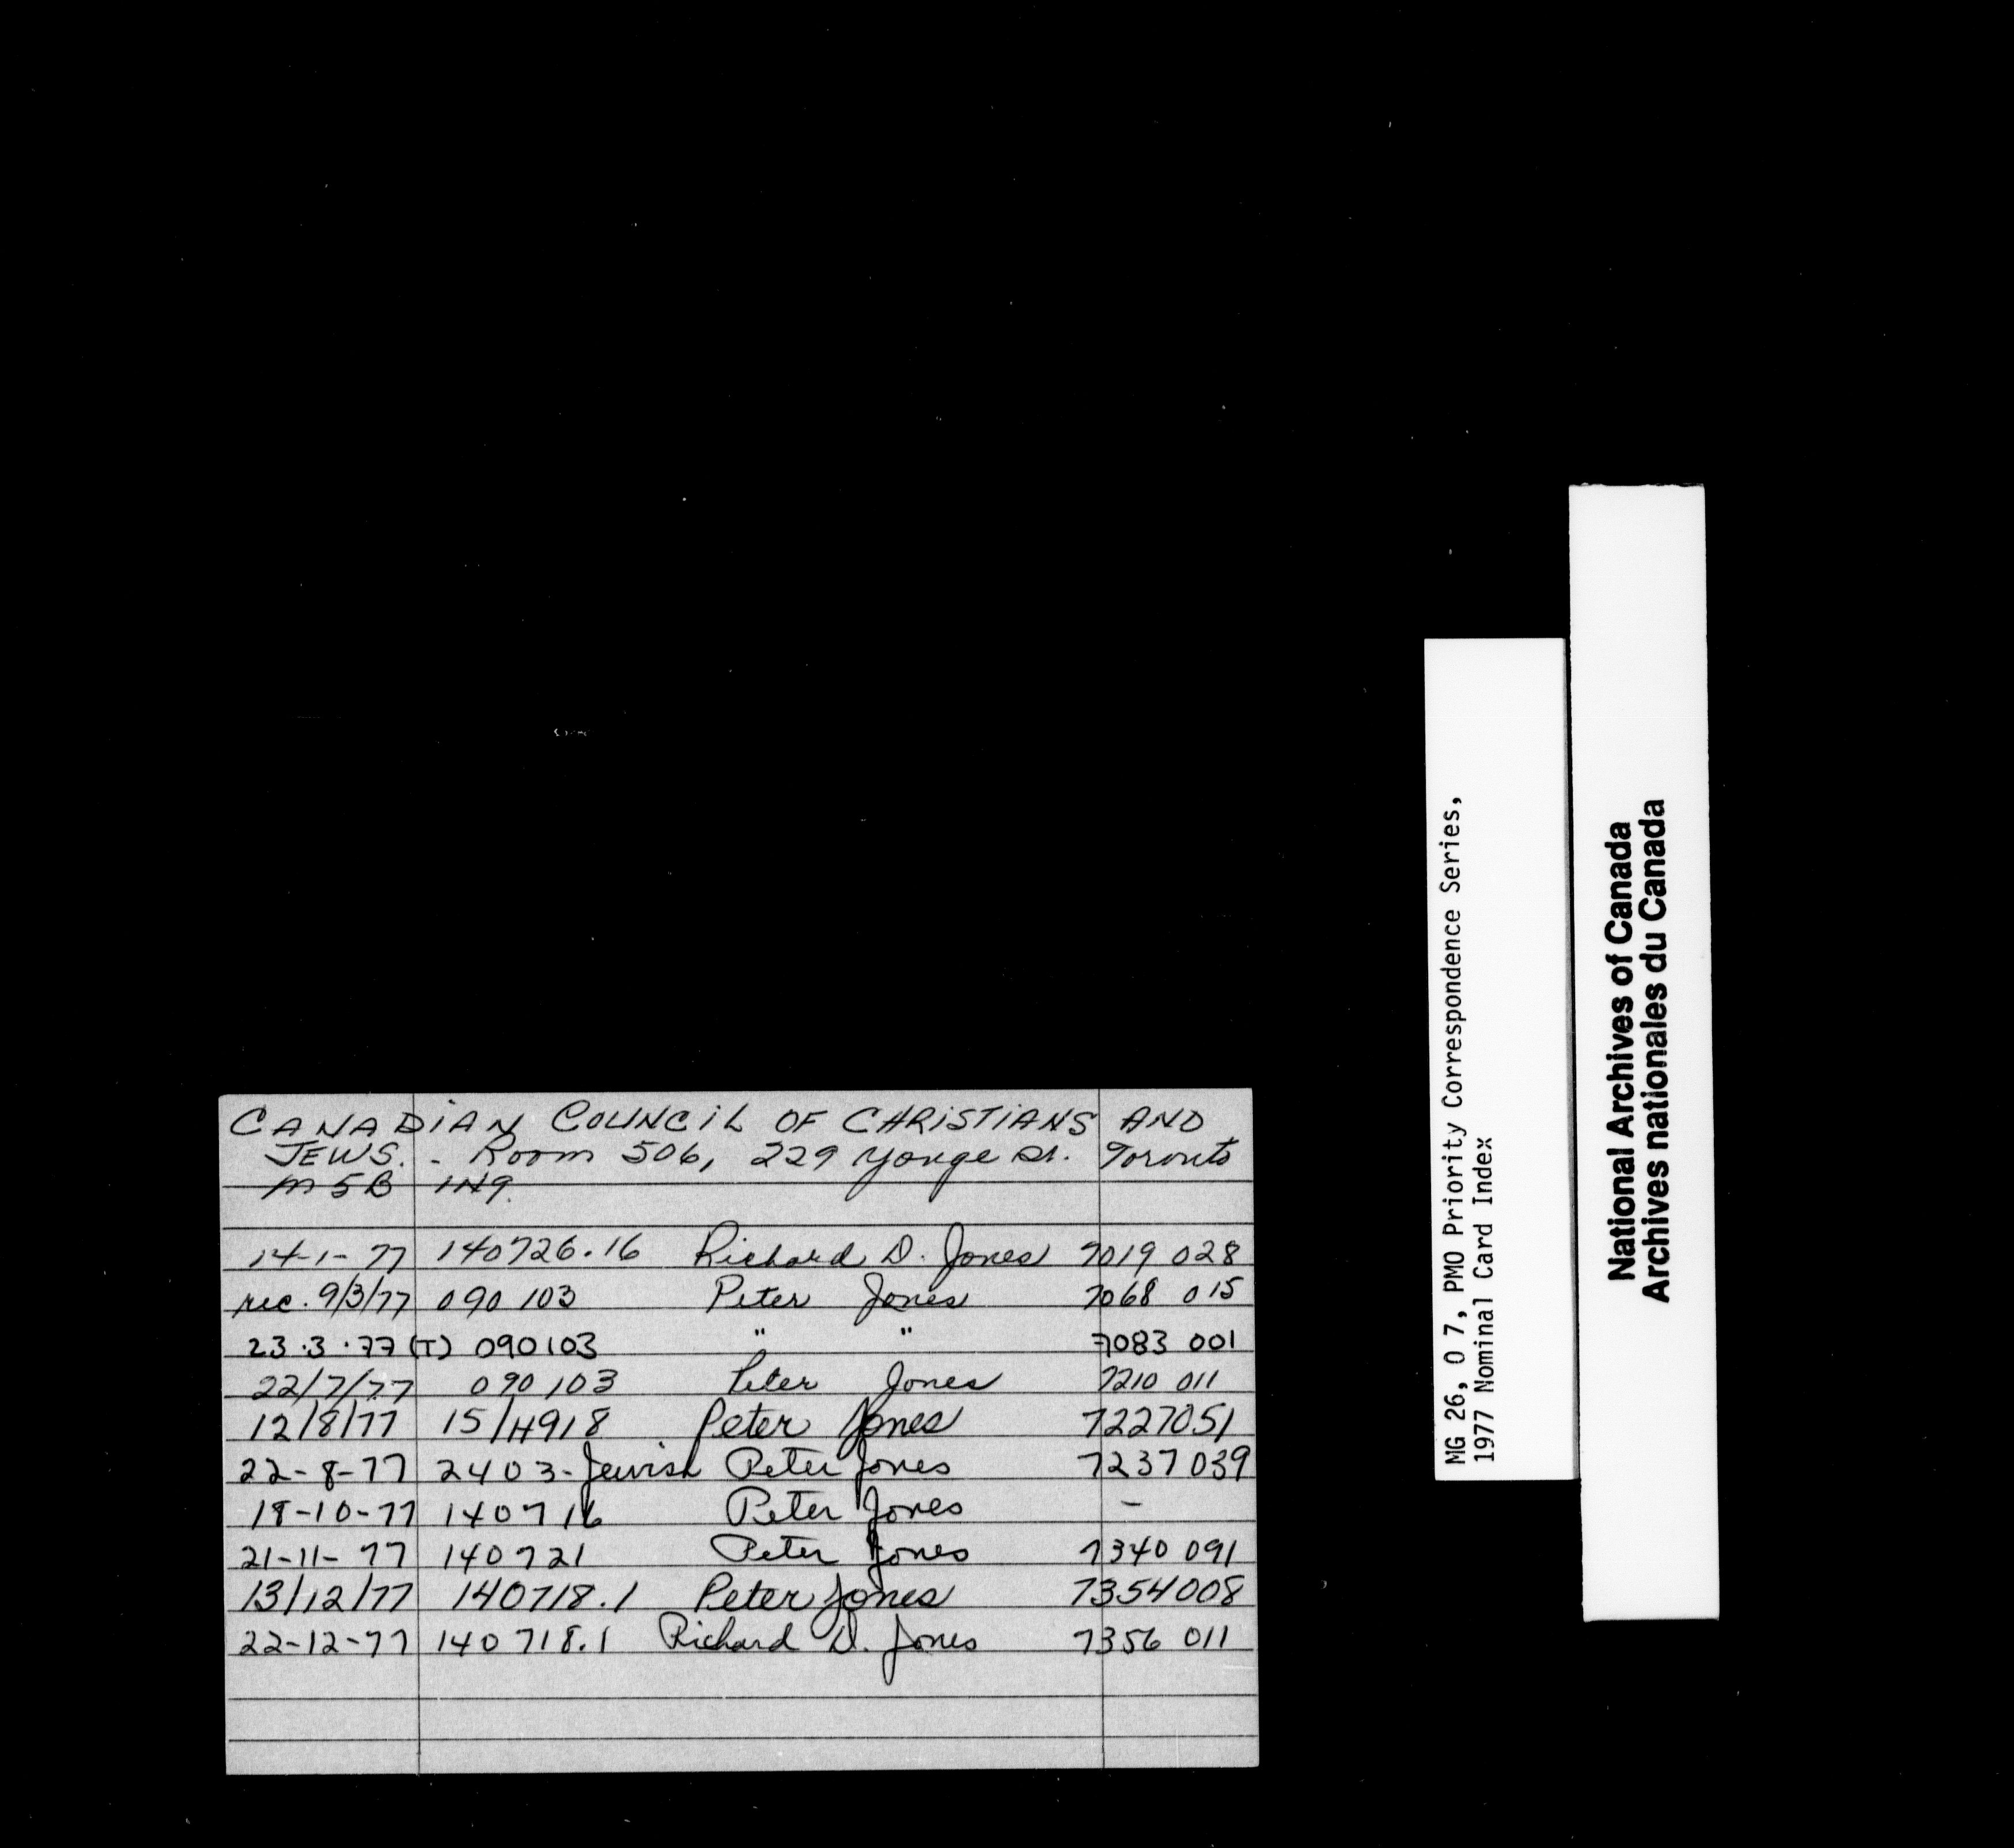 CANADIAN COUNCIL OF CHRISTIANS AND
JEWS. - Room 506, 229 Yonge St. Toronto
M5B 1N9.
14-1-77 140726.16 Richard D. Jones 7019 028
rec. 9/3/77 090103 Peter Jones 7068 015
23.3.77 (T) 090103 " " 7083 001
22/7/77 090103 Peter Jones 7210 011
12/8/77 15/H918 Peter Jones 7227051
22-8-77 2403-Jewish Peter Jones 7237 039
18-10-77 140716 Peter Jones -
21-11-77 140721 Peter Jones 7340 091
13/12/77 140718.1 Peter Jones 7354008
22-12-77 140718.1 Richard D. Jones 7356 011
MG 26, O 7, PMO Priority Correspondence Series,
1977 Nominal Card Index
National Archives of Canada
Archives nationales du Canada